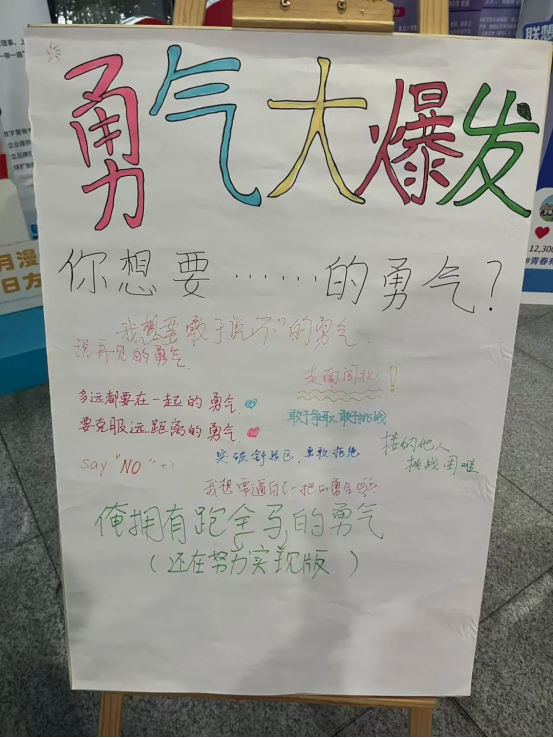 勇气大爆发
你想要……的勇气?
我想要敢于说"不"的勇气.
说再见的勇气
走南闯北!
多远都要在一起的勇气.
要克服远距离的勇气.
敢于争取,敢于挑战
接纳他人
挑战困难
say "NO" +1
突破舒适区,勇敢拒绝
我想要逼自己一把的勇气
俺拥有跑全马的勇气
(还在努力实现版)
联想
12,300
#青春
月漫
日方